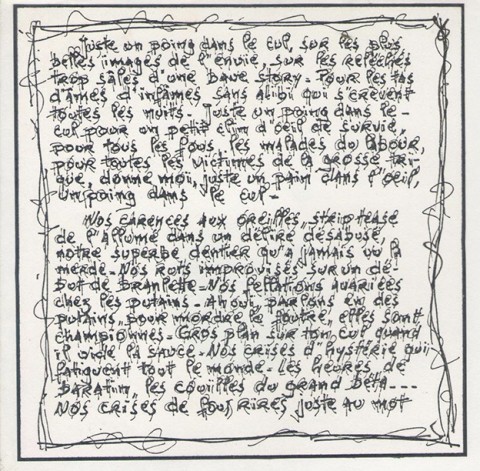 Juste un poing dans le cul, sur les plus
belles images de l'envie, sur les reflechies
trop sales d'une bave story - Pour les tas
d'âmes d'infâmes sans alibi qui s'crèvent
toutes les nuits - Juste un poing dans le -
cul pour un petit clim d'oeil de survie,
pour tous les fous, les malades du labour,
pour toutes les victimes de la grosse tri-
que, donne moi, juste un pain dans l'oeil,
un poing dans le cul -
Nos carences aux oreilles, striptease
de l'allumé dans un délire désabusé,
notre superbe dentier qu'a jamais vu la
merde - Nos rots improvisés sur un dé-
but de branlette - Nos fellations avariées
chez les putains - Ah oui, parlons en des
putains, pour mordre le foutre, elles sont
championnes - Gros plan sur ton cul quand
il vide la sauce - Nos crises d'hystérie qui
fatiguent tout le monde - Les heures de
baratin, les couilles du grand bêta ---
Nos crises de fous rires juste au mot